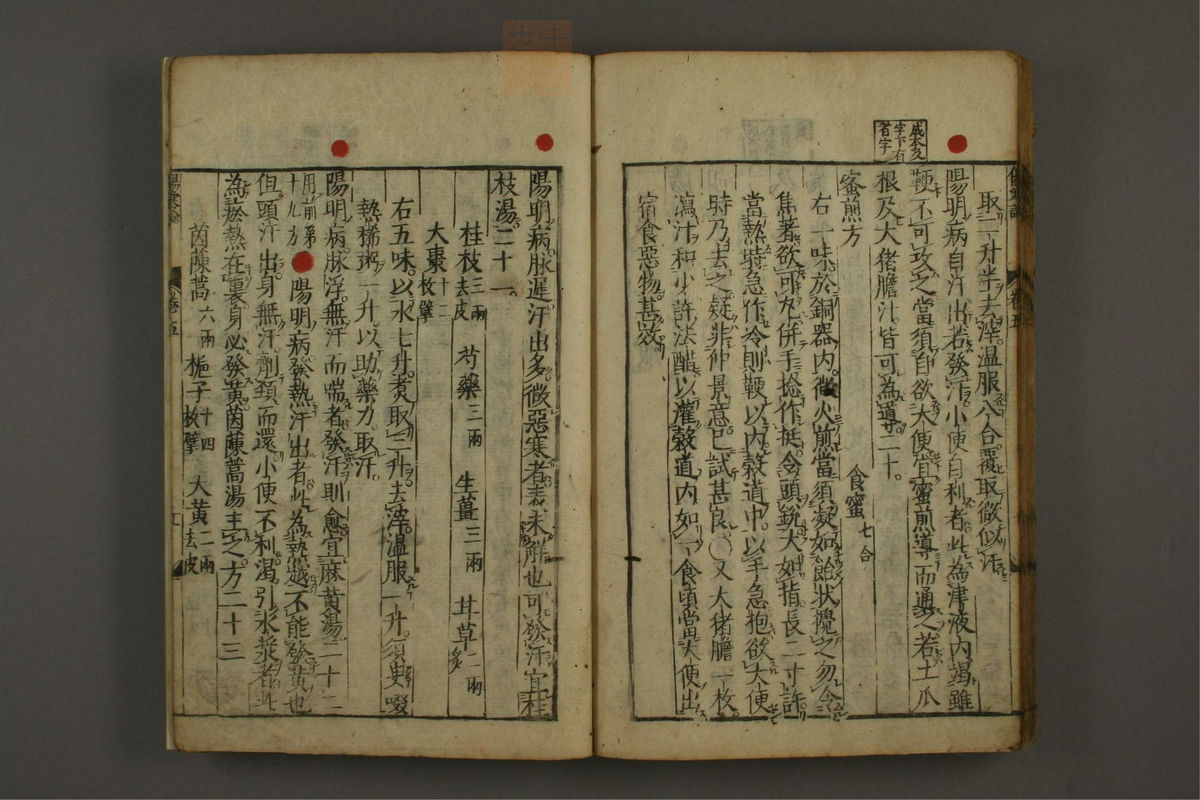 成本及
字下有
者字
取二升半去滓溫服八合覆取微似汗
陽明病自汗出若發汗小便自利者此為津液內竭雖
鞕不可攻之當須自欲大便宜蜜煎導而通之若土瓜
根及大猪膽汁皆可為導二十
蜜煎方
食蜜七合
右一味於銅器內微火煎當須凝如飴狀攪之勿令
焦著欲可丸併手捻作挺令頭銳大如指長二寸許
當熱時急作冷則鞕以內穀道中以手急抱欲大便
時乃去之疑非仲景意已試甚良〇又大猪膽一枚
瀉汁和少許法醋以灌穀道內如一食頃當大便出
宿食惡物甚效
陽明病脉遲汗出多微惡寒者表未解也可發汗宜桂
枝湯二十一
桂枝三兩去皮 芍藥三兩 生薑三兩 甘草二兩炙
大棗十二枚擘
右五味以水七升煑取三升去滓溫服一升須臾啜
熱稀粥一升以助藥力取汗
陽明病脉浮無汗而喘者發汗則愈宜麻黃湯二十二
用前第十九方 陽明病發熱汗出者此為熱越不能發黃也
但頭汗出身無汗劑頚而還小便不利渴引水漿者此
為瘀熱在裏身必發黃茵蔯蒿湯主之方二十三
茵蔯蒿六兩 梔子十四枚擘 大黃二兩去皮